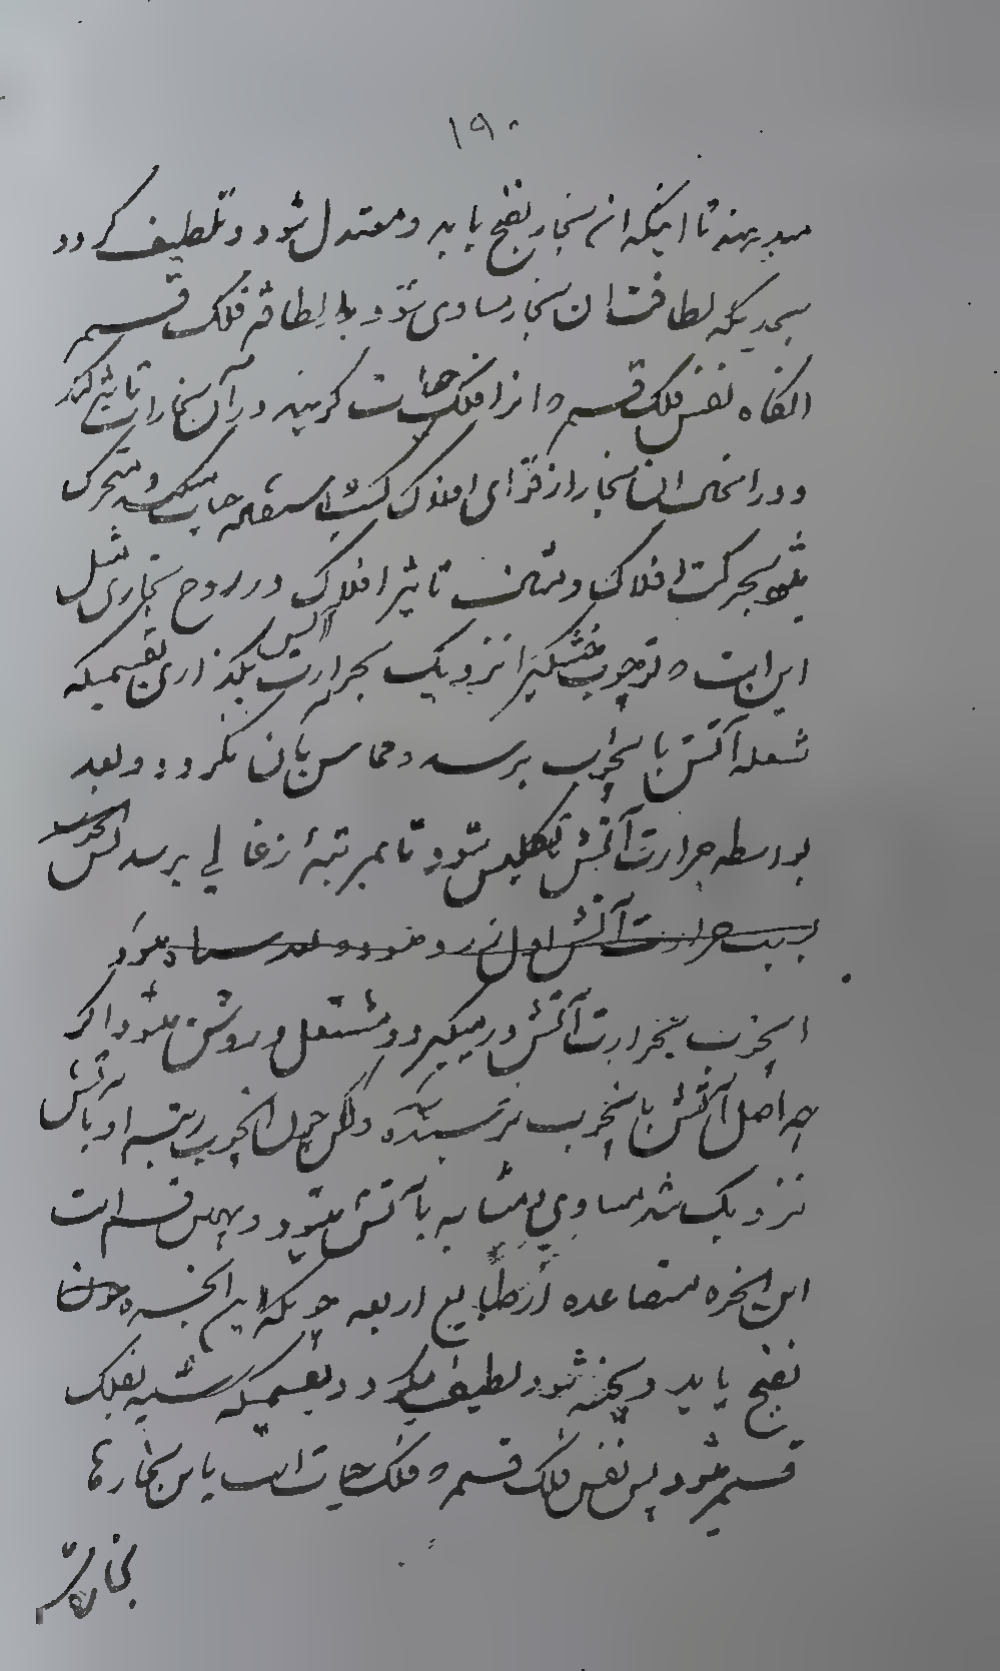 ۱۹۰
میدهند تا اینکه ان بخار نضج یابد و معتدل شود و تلطیف کردد
بحدیکه لطافت ان بخار مساوی شود با لطافة فلک قسم
انکاه نفس فلک قسم و از افلک حیات کویند در آن بخارات تاثیر کند
و در ان بخار از قوای افلاک حیات میکند و متحرک
میشود بحرکت افلاک و تاثیر افلاک در روح بخاری مثل
این است که تو چوب خشکیرا نزدیک بحرارت آتش بکذاری بقسمیکه
شعله آتش بانچوب نرسد و مماس بان نکردد و بعد
بواسطه حرارت آتش تکلیس شود تا بمرتبهٔ زغالی برسد پس
بسبب حرارت آتش اول زرد میشود و بعد سیاه میشود
انچوب بحرارت آتش در میکیرد و مشتعل و روشن میشود اکر
چه اصل آتش بانچوب نرسیده ولکن چون انچوب رتبه او بآتش
نزدیک شد مساوی و مشابه بآتش میشود و بهمین قسم است
این ابخره متصاعده از طبایع اربعه چونکه این ابخره چون
نضج یابد و پخته شود لطیف میکردد بقسمیکه شبیه بفلک
قسم میشود پس نفس فلک قسم و فلک حیات است باین بخارها